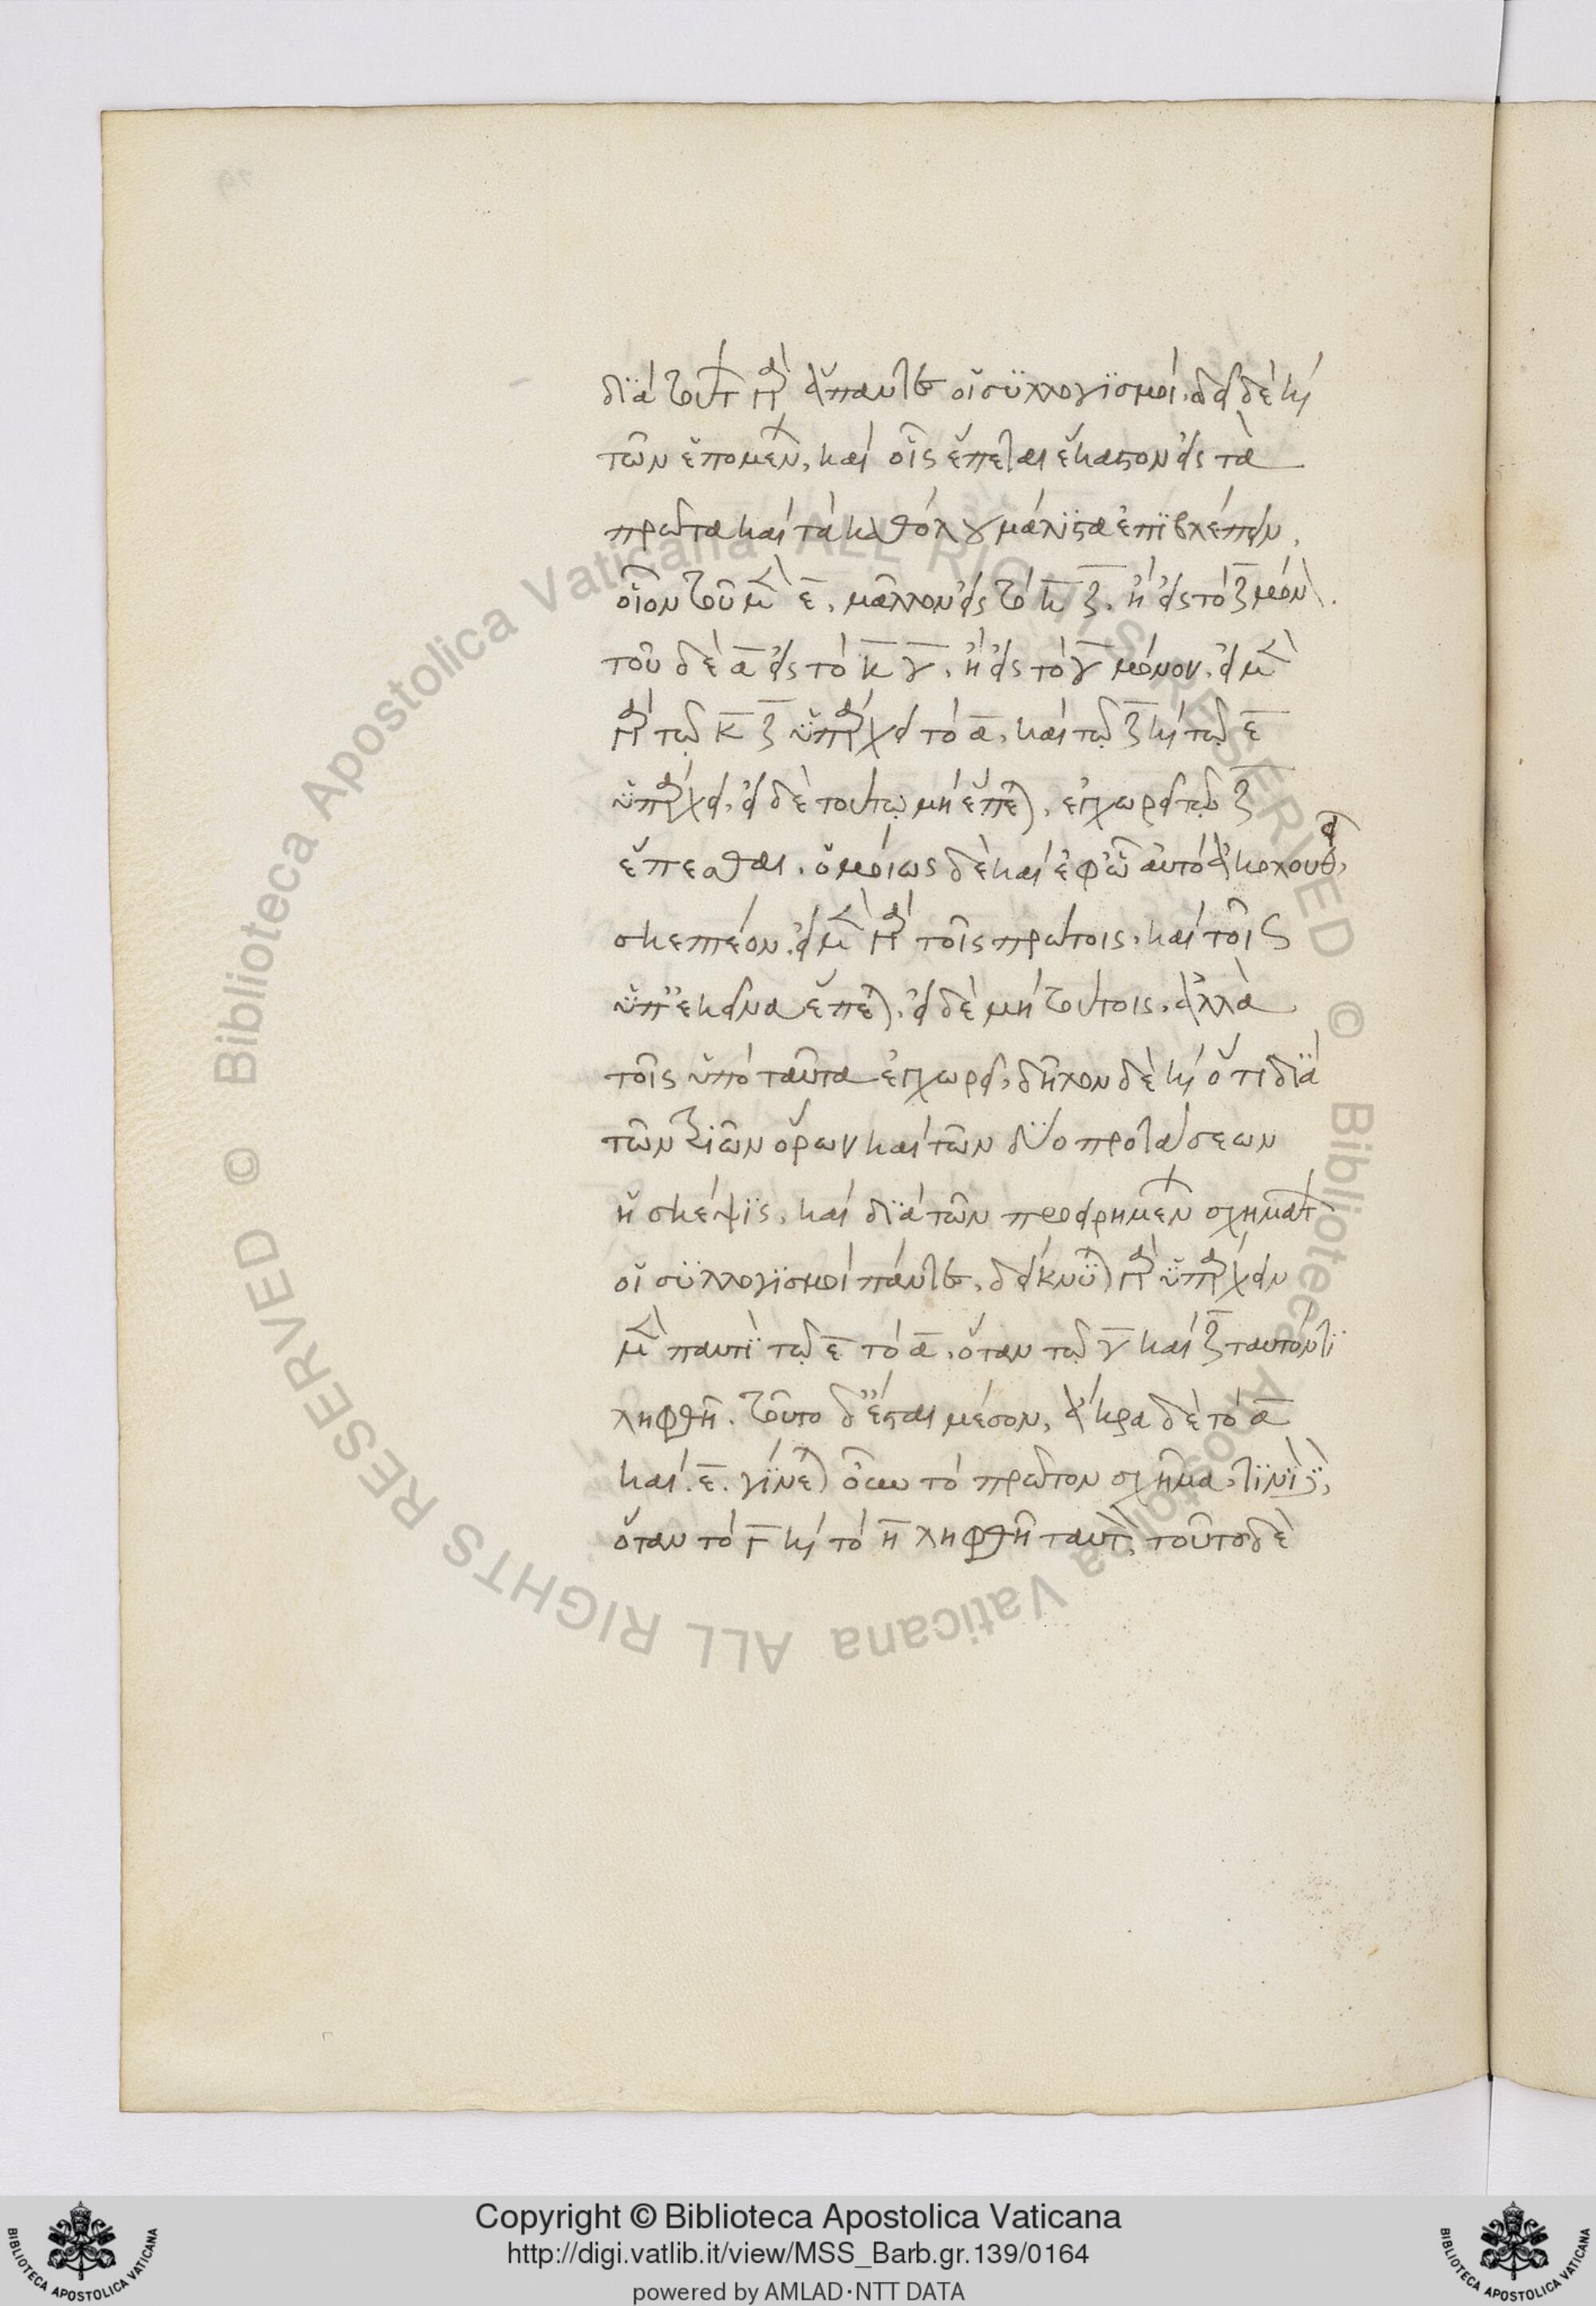 διὰ τούτων γὰρ ἅπαντες οἱ συλλογισμοί. δεῖ δὲ καὶ
τῶν ἑπομένων, καὶ οἷς ἕπεται ἕκαστον εἰς τὰ
πρῶτα καὶ τὰ καθόλου μάλιστα ἐπιβλέπειν,
οἷον τοῦ μὲν ε̄, μᾶλλον εἰς τὸ κ̄ ζ̄, ἢ εἰς τὸ ζ̄ μόνον.
τοῦ δὲ ᾱ εἰς τὸ κ̄ γ̄, ἢ εἰς τὸ γ̄ μόνον. εἰ μὲν
γὰρ τῷ κ̄ ζ̄ ὑπάρχει τὸ ᾱ, καὶ τῷ ζ̄ καὶ τῷ ε̄
ὑπάρχει, εἰ δὲ τούτῳ μὴ ἕπεται, ἐγχωρεῖ τῷ ζ̄
ἕπεσθαι. ὁμοίως δὲ καὶ ἐφ' ὧν αὐτὸ ἀκολουθεῖ,
σκεπτέον. εἰ μὲν γὰρ τοῖς πρώτοις, καὶ τοῖς
ὑπ' ἐκεῖνα ἕπεται, εἰ δὲ μὴ τούτοις, ἀλλὰ
τοῖς ὑπὸ ταῦτα ἐγχωρεῖ, δῆλον δὲ καὶ ὅτι διὰ
τῶν τριῶν ὅρων καὶ τῶν δύο προτάσεων
ἡ σκέψις, καὶ διὰ τῶν προειρημένων σχημάτων
οἱ συλλογισμοὶ πάντες, δείκνυται γὰρ ὑπάρχειν
μὲν παντὶ τῷ ε̄ τὸ ᾱ, ὅταν τῶν γ̄ καὶ ζ̄ ταυτόν τι
ληφθῇ. τοῦτο δ' ἔσται μέσον, ἄκρα δὲ τὸ ᾱ
καὶ ε̄. γίνεται οὖν τὸ πρῶτον σχῆμα, τινὶ δὲ,
ὅταν τὸ γ̄ καὶ τὸ η̄ ληφθῇ ταυτόν, τοῦτο δὲ
Copyright © Biblioteca Apostolica Vaticana
http://digi.vatlib.it/view/MSS_Barb.gr.139/0164
powered by AMLAD·NTT DATA